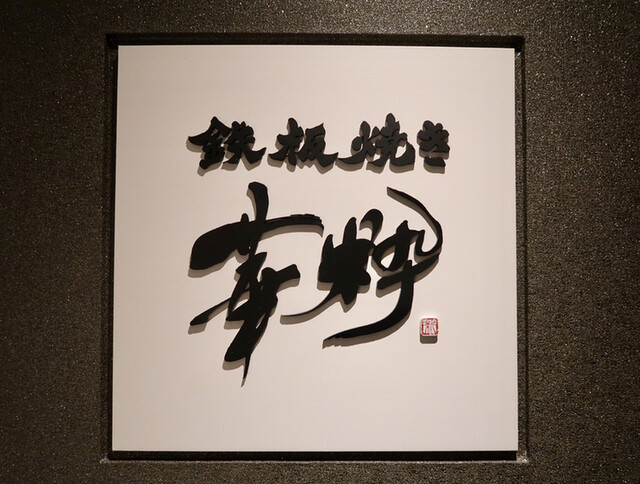 鉄板焼き
華粋